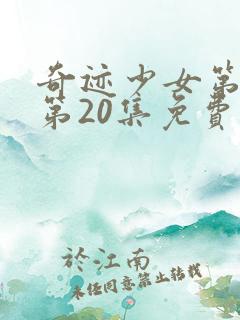 奇迹少女第
第20集免費
於江南
未经同意禁止转载